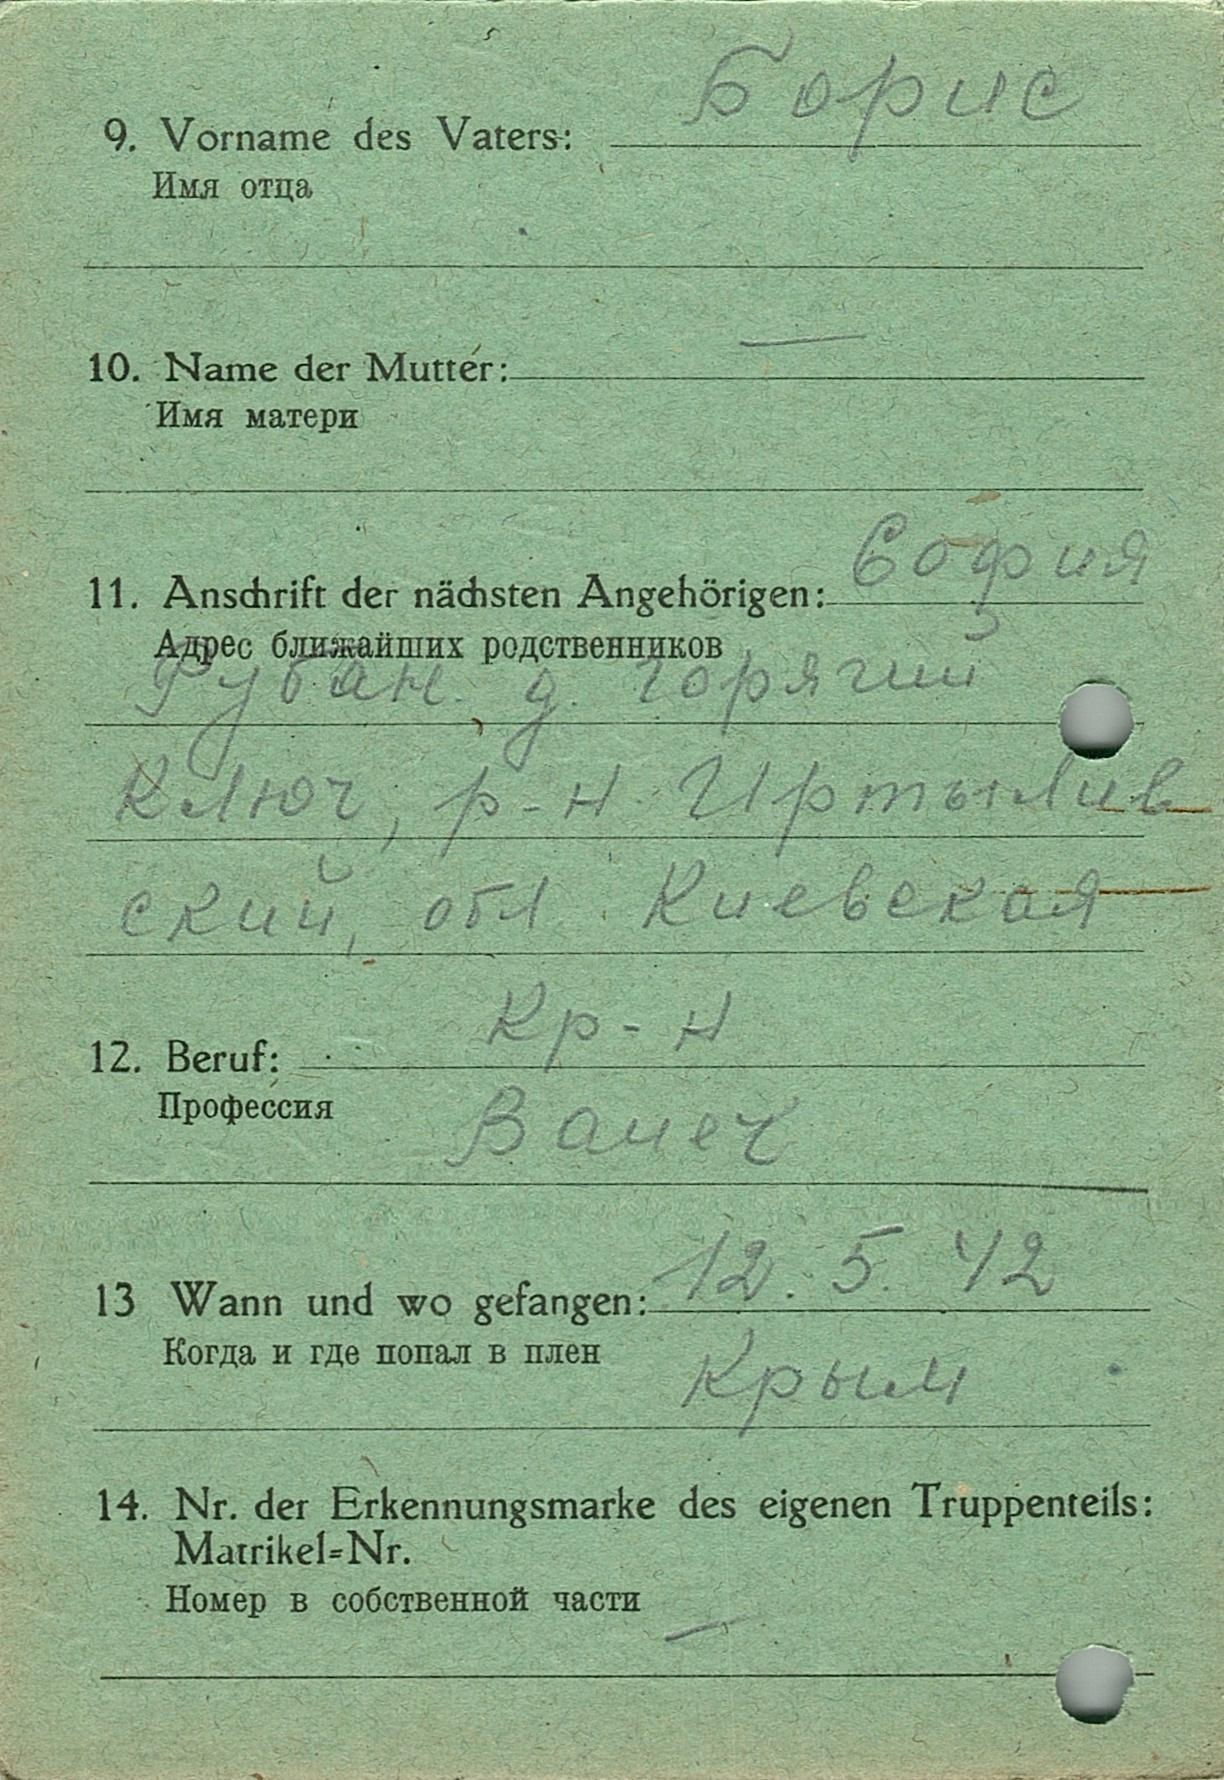 Борис
9. Vorname des Vaters:
Имя отца
10. Name der Mutter: —
Имя матери
София
11. Anschrift der nächsten Angehörigen:
Адрес ближайших родственников
Рубан. д. Горячий
Ключ, р-н Иртылив
ский, обл Киевская
Кр-н
12. Beruf:
Профессия
12. 5. 42
13 Wann und wo gefangen:
Когда и где попал в плен
Крым
14. Nr. der Erkennungsmarke des eigenen Truppenteils:
Matrikel=Nr.
Номер в собственной части
—